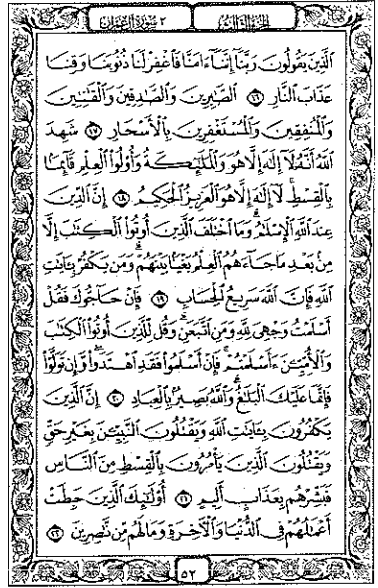 الجزء الثالث ٣ سورة آل عمران
ٱلَّذِينَ يَقُولُونَ رَبَّنَآ إِنَّنَآ ءَامَنَّا فَٱغْفِرْ لَنَا ذُنُوبَنَا وَقِنَا
عَذَابَ ٱلنَّارِ ١٦ ٱلصَّـٰبِرِينَ وَٱلصَّـٰدِقِينَ وَٱلْقَـٰنِتِينَ
وَٱلْمُنفِقِينَ وَٱلْمُسْتَغْفِرِينَ بِٱلْأَسْحَارِ ١٧ شَهِدَ
ٱللَّهُ أَنَّهُۥ لَآ إِلَـٰهَ إِلَّا هُوَ وَٱلْمَلَـٰٓئِكَةُ وَأُو۟لُوا۟ ٱلْعِلْمِ قَآئِمًۢا
بِٱلْقِسْطِ ۚ لَآ إِلَـٰهَ إِلَّا هُوَ ٱلْعَزِيزُ ٱلْحَكِيمُ ١٨ إِنَّ ٱلدِّينَ
عِندَ ٱللَّهِ ٱلْإِسْلَـٰمُ ۗ وَمَا ٱخْتَلَفَ ٱلَّذِينَ أُوتُوا۟ ٱلْكِتَـٰبَ إِلَّا
مِنۢ بَعْدِ مَا جَآءَهُمُ ٱلْعِلْمُ بَغْيًۢا بَيْنَهُمْ ۗ وَمَن يَكْفُرْ بِـَٔايَـٰتِ
ٱللَّهِ فَإِنَّ ٱللَّهَ سَرِيعُ ٱلْحِسَابِ ١٩ فَإِنْ حَآجُّوكَ فَقُلْ
أَسْلَمْتُ وَجْهِىَ لِلَّهِ وَمَنِ ٱتَّبَعَنِ ۗ وَقُل لِّلَّذِينَ أُوتُوا۟ ٱلْكِتَـٰبَ
وَٱلْأُمِّيِّـۧنَ ءَأَسْلَمْتُمْ ۚ فَإِنْ أَسْلَمُوا۟ فَقَدِ ٱهْتَدَوا۟ ۖ وَّإِن تَوَلَّوْا۟
فَإِنَّمَا عَلَيْكَ ٱلْبَلَـٰغُ ۗ وَٱللَّهُ بَصِيرٌۢ بِٱلْعِبَادِ ٢٠ إِنَّ ٱلَّذِينَ
يَكْفُرُونَ بِـَٔايَـٰتِ ٱللَّهِ وَيَقْتُلُونَ ٱلنَّبِيِّـۧنَ بِغَيْرِ حَقٍّ
وَيَقْتُلُونَ ٱلَّذِينَ يَأْمُرُونَ بِٱلْقِسْطِ مِنَ ٱلنَّاسِ
فَبَشِّرْهُم بِعَذَابٍ أَلِيمٍ ٢١ أُو۟لَـٰٓئِكَ ٱلَّذِينَ حَبِطَتْ
أَعْمَـٰلُهُمْ فِى ٱلدُّنْيَا وَٱلْـَٔاخِرَةِ وَمَا لَهُم مِّن نَّـٰصِرِينَ ٢٢
٥٢